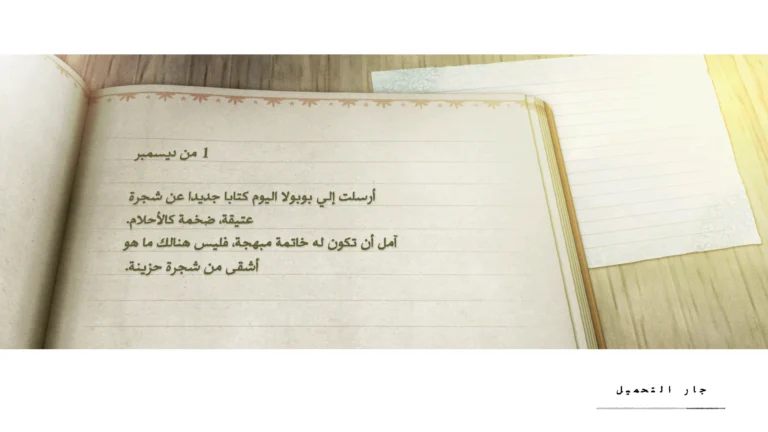 1 من ديسمبر
أرسلت إلي بوبولا اليوم كتابا جديدا عن شجرة
عتيقة، ضخمة كالأحلام.
آمل أن تكون له خاتمة مبهجة، فليس هنالك ما هو
أشقى من شجرة حزينة.
جار التحميل